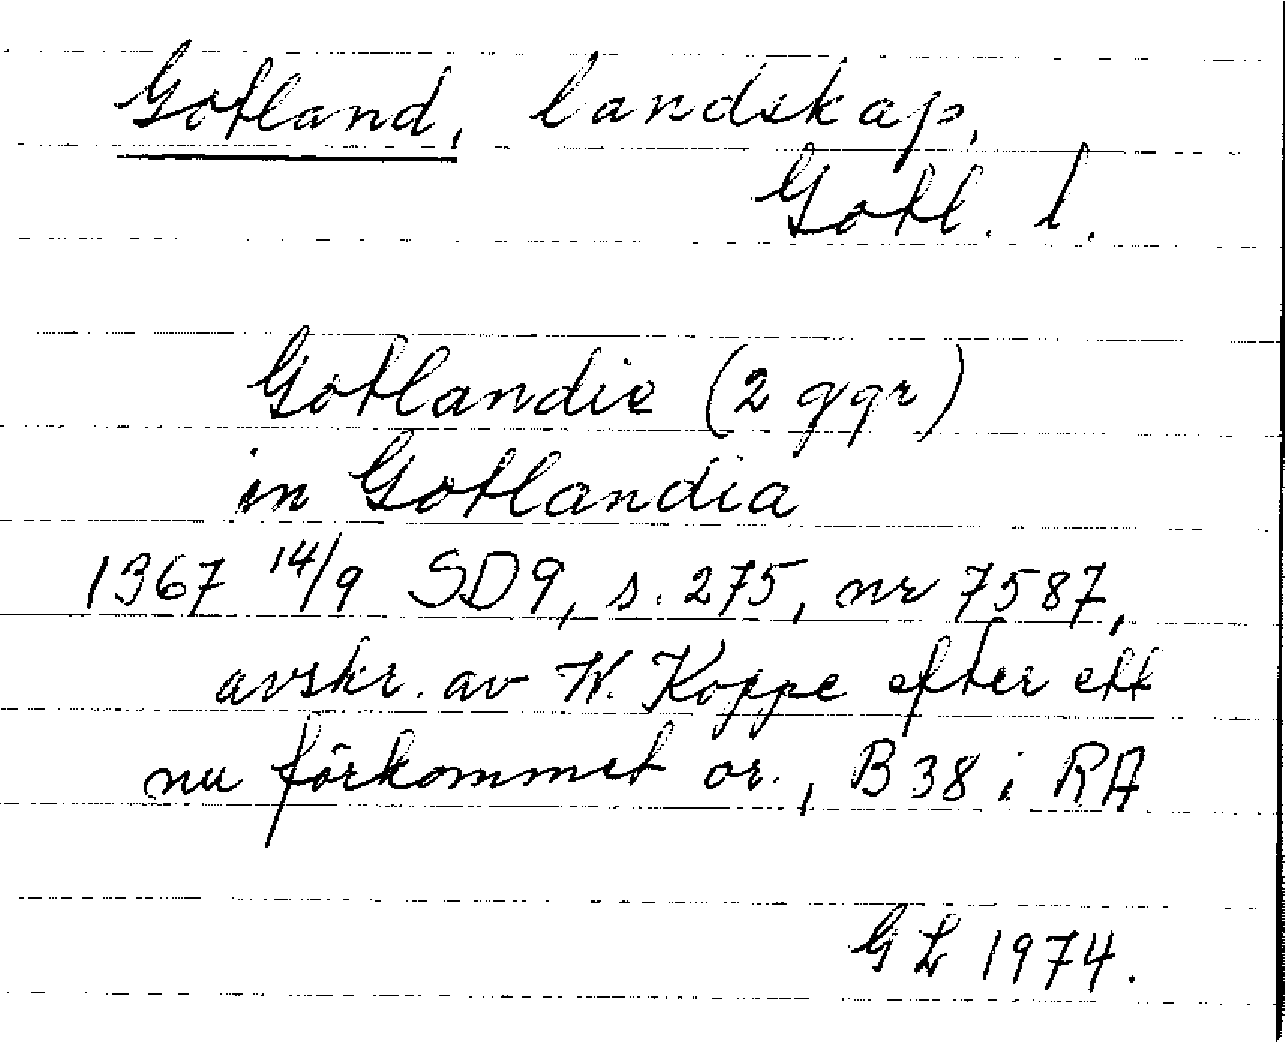 Gotland, landskap,
Gotl. l.
Gotlandie (2 ggr)
in Gotlandia
1367 14/9 SD9, s. 275, nr 7587,
avskr. av W. Koppe efter ett
nu förkommet or., B 38 i RA
GL 1974.